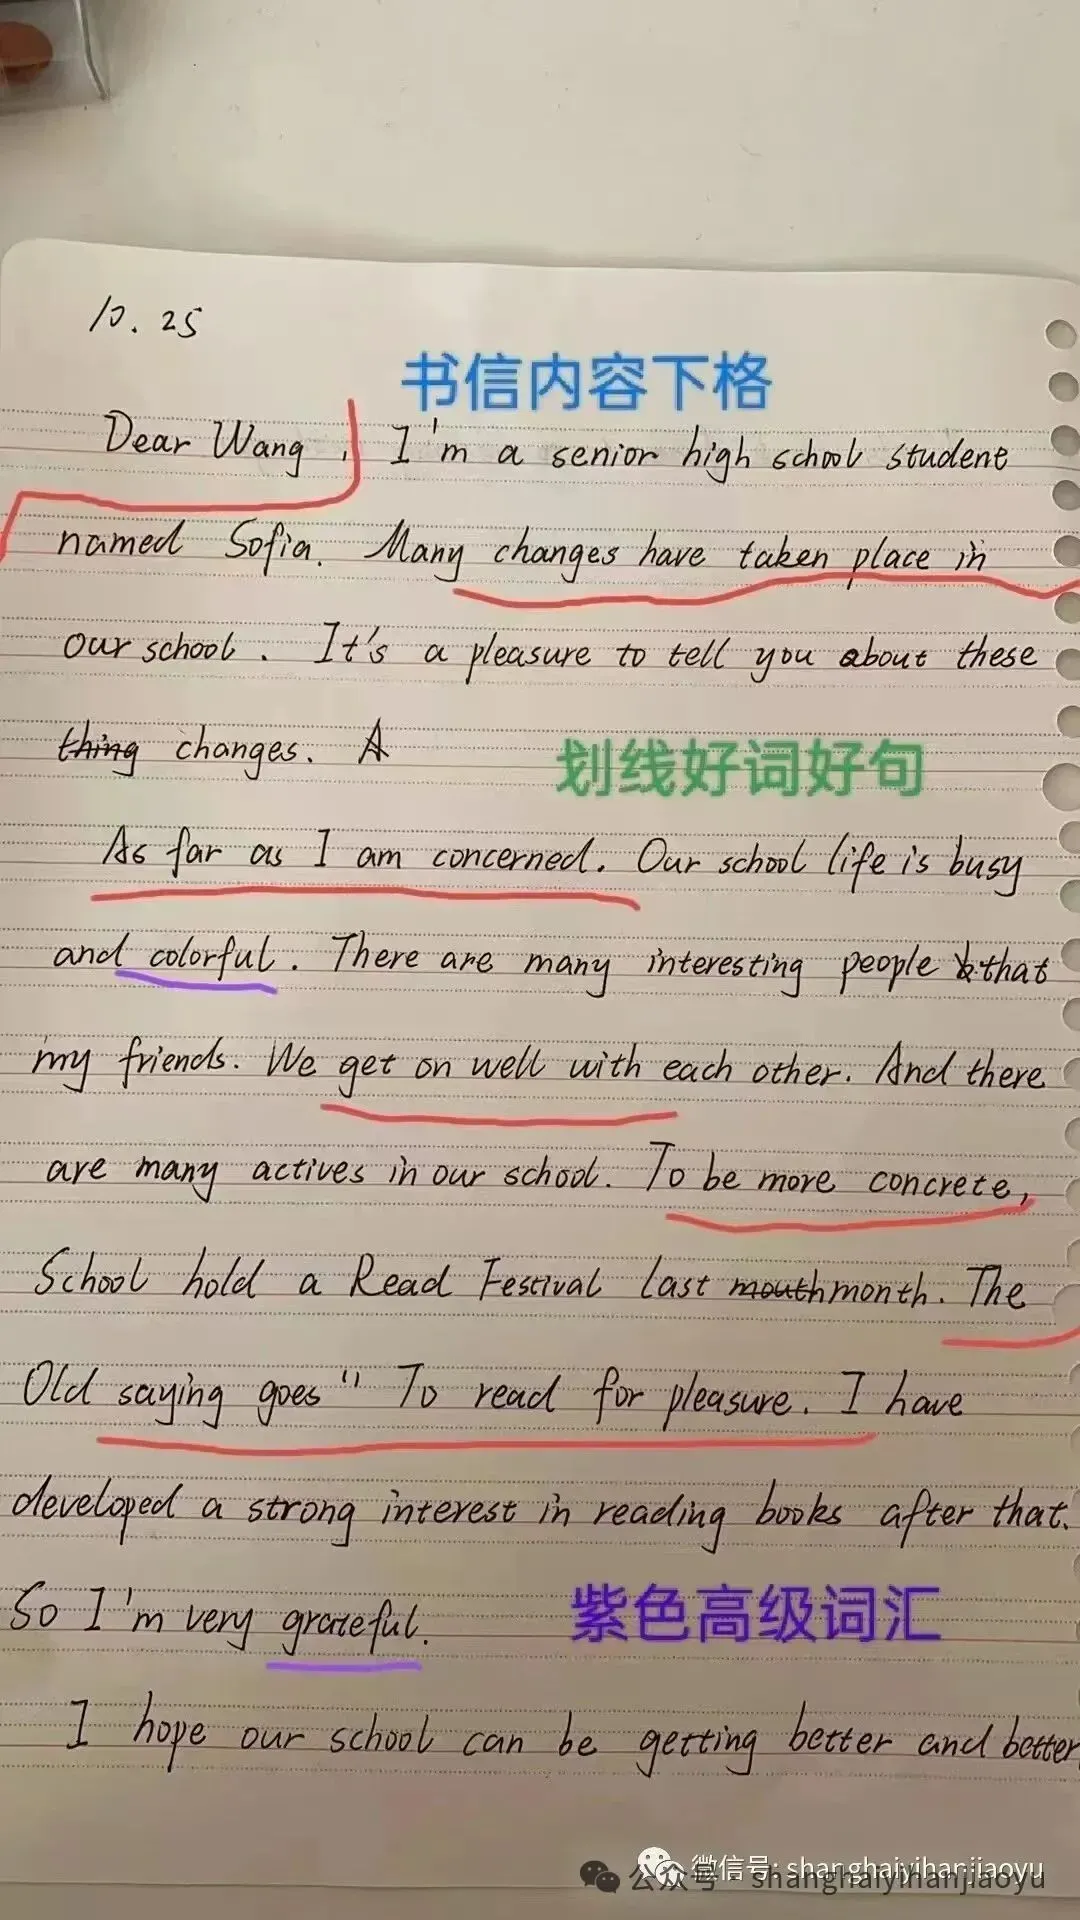 10. 25
书信内容下格
Dear Wang, I'm a senior high school student
named Sofia. Many changes have taken place in
our school. It's a pleasure to tell you about these
thing changes. A
划线好词好句
As far as I am concerned. Our school life is busy
and colorful. There are many interesting people that
my friends. We get on well with each other. And there
are many actives in our school. To be more concrete,
School hold a Read Festival last mouth month. The
Old saying goes " To read for pleasure. I have
developed a strong interest in reading books after that.
So I'm very grateful.
紫色高级词汇
I hope our school can be getting better and better
微信号: shanghaiyihanjiaoyu
公众号 · shanghaiyihanjiaoyu